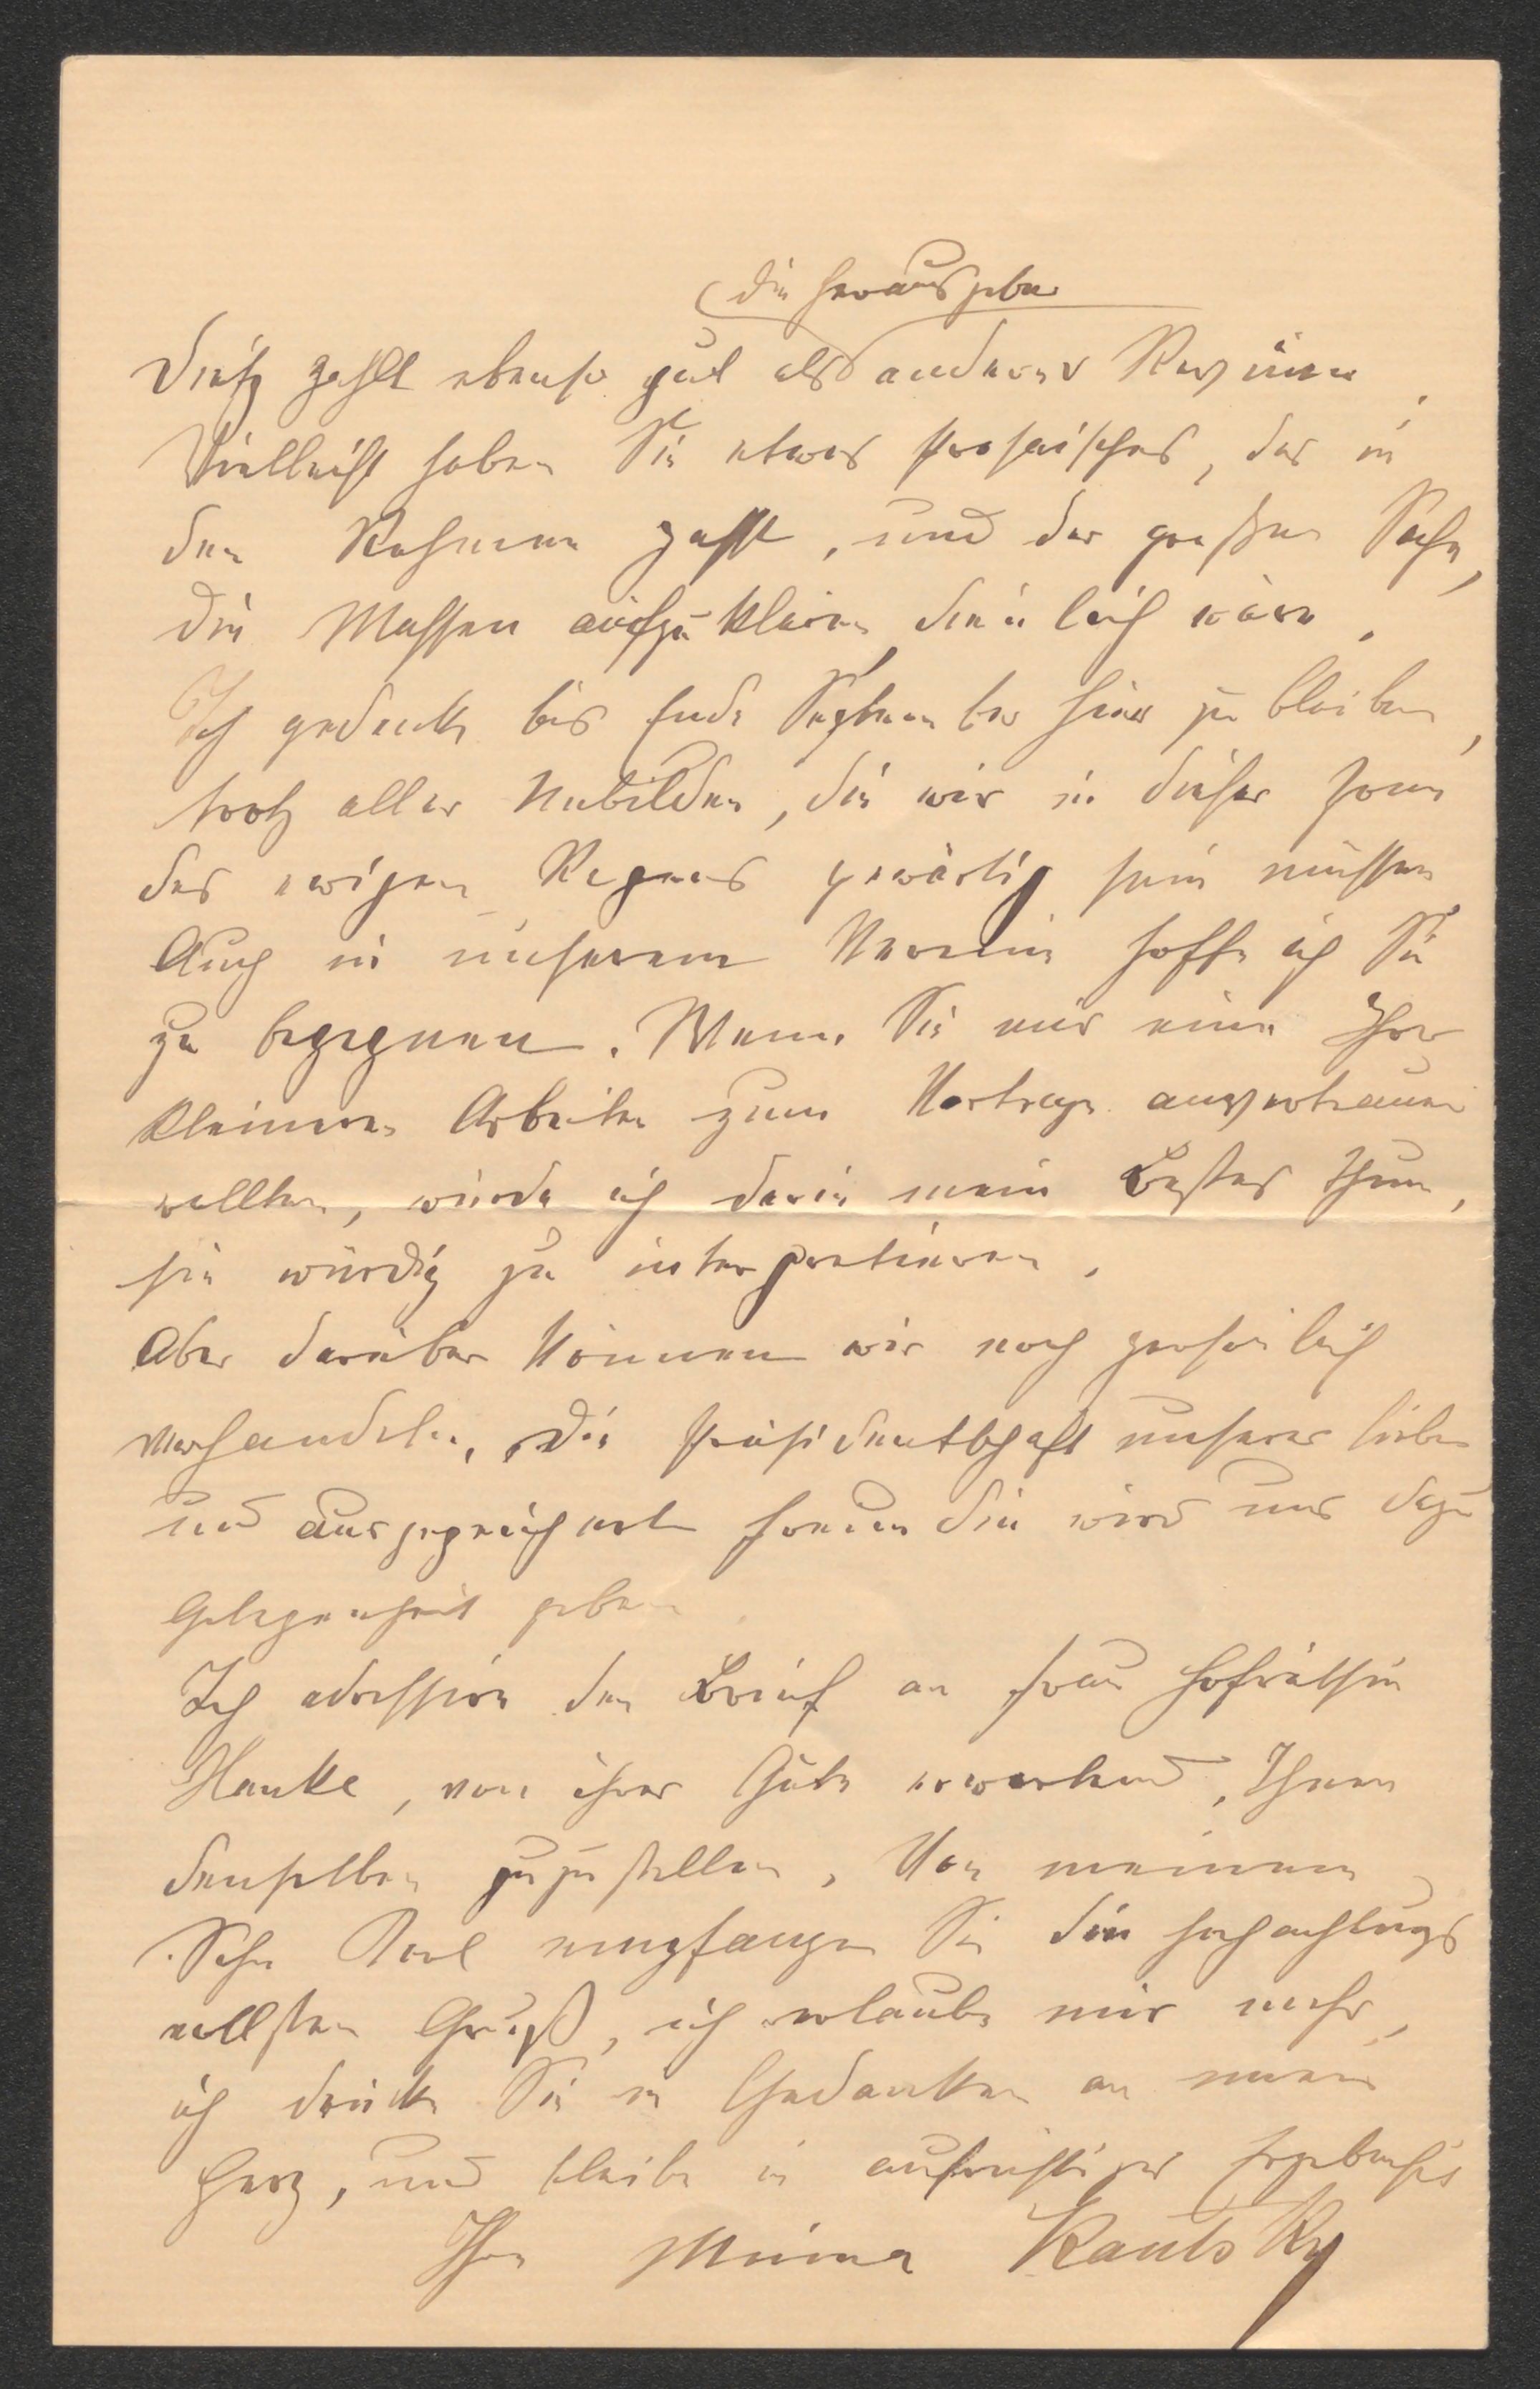 die Herausgeber
Dietz zahlt ebenso gut als anderer Revüen.
Vielleicht haben Sie etwas prosaisches, das in
den Rahmen paßt, und der großen Sache,
die Massen aufzuklären dienlich wäre.
Ich gedenke bis Ende September hier zu bleiben,
trotz aller Unbilden, die wir in dieser Zone
des ewigen Regens gewärtig sein müssen
Auch in unserem Verein hoffe ich Sie
zu begegnen. Wenn Sie mir eine Ihrer
kleineren Arbeiten zum Vortrage anvertrauen
wollten, würde ich darin mein Bestes thun,
sie würdig zu interpretieren.
Aber darüber können wir noch persönlich
verhandeln. Die Präsidentschaft unserer lieben
und ausgezeichneten Freundin wird uns dazu
Gelegenheit geben
Ich adressire den Brief an Frau Hofräthin
Hanke, von ihrer Güte erwartend, Ihnen
denselben zuzustellen. Von meinem
Sohn Karl empfangen Sie den hochachtungs
vollsten Gruß, ich erlaube mir mehr,
ich drücke Sie in Gedanken an mein
Herz, und bleibe in aufrichtiger Ergebenheit
Ihre Minna Kautsky